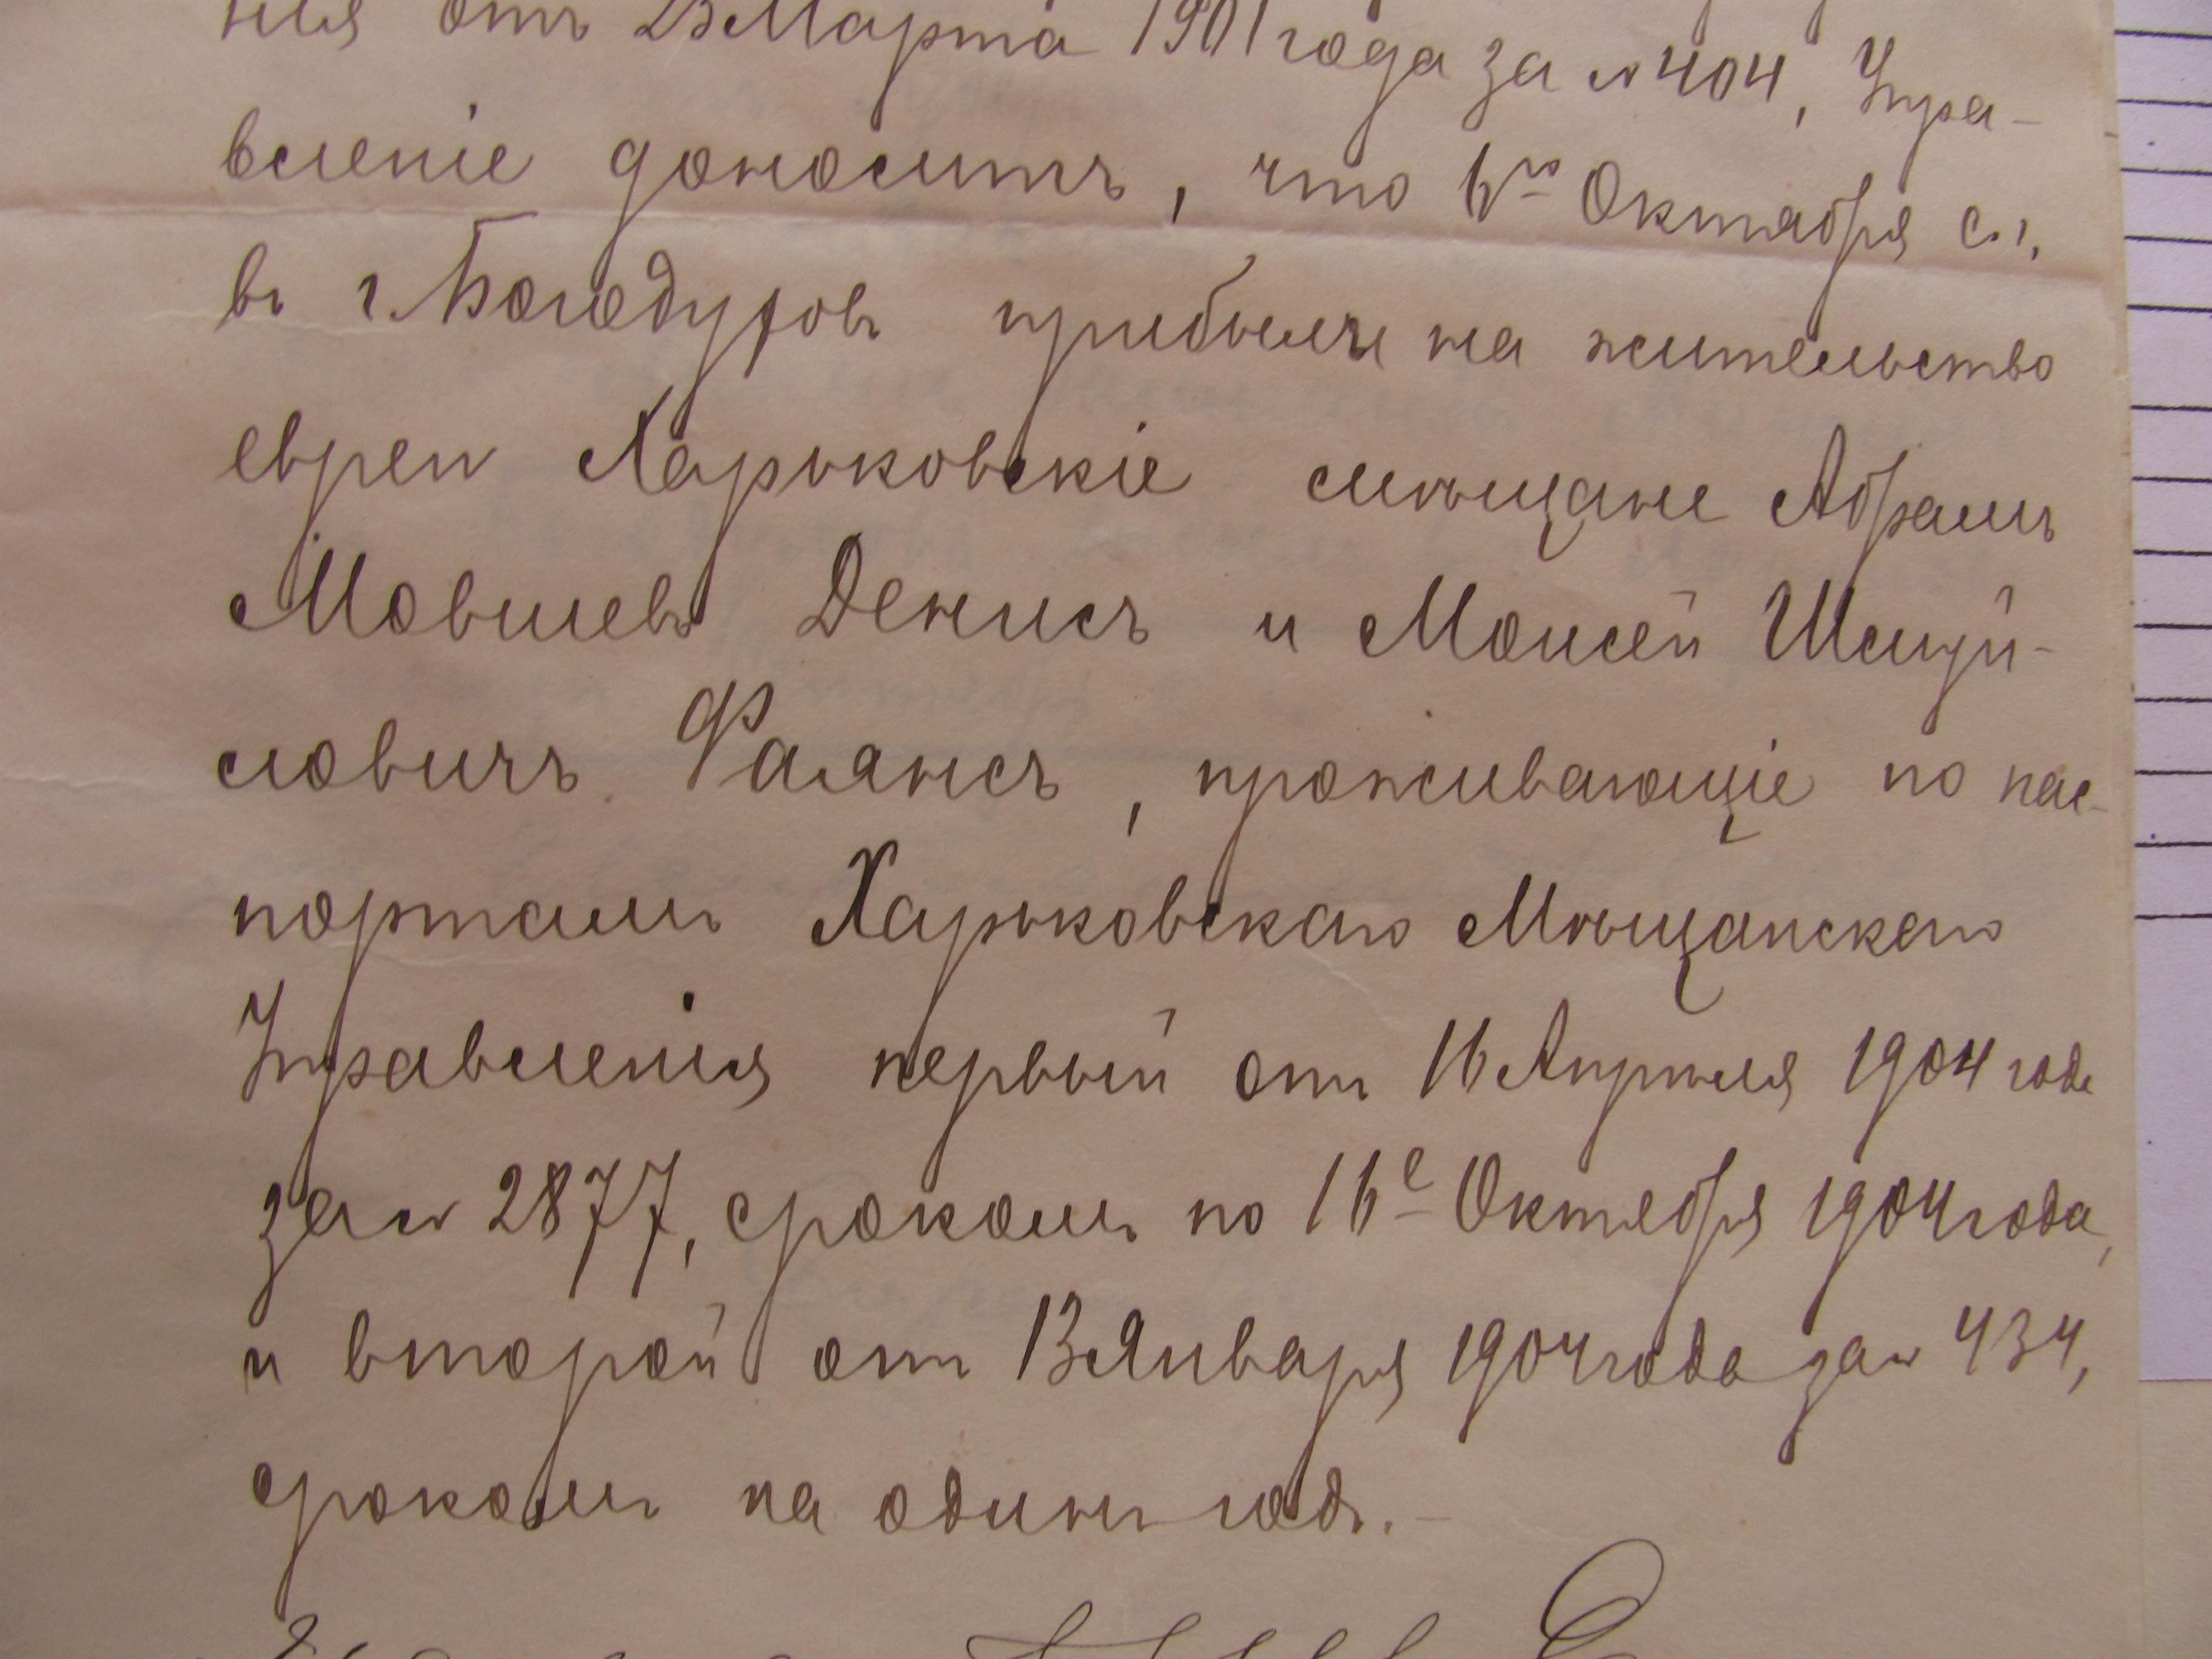 нія отъ 23 Марта 1901 года за № 404, Упра-
вленіе доноситъ, что 6го Октября с. г.
въ г. Богодуховъ прибыли на жительство
евреи Харьковскіе мѣщане Абрамъ
Мовшевъ Денисъ и Моисей Шмуй-
ловичъ Фаянсъ, проживающіе по пас-
портамъ Харьковскаго Мѣщанскаго
Управленія первый отъ 16 Апрѣля 1904 года
за № 2877, срокомъ по 16е Октября 1904 года,
и второй отъ 13 Января 1904 года за № 434,
срокомъ на одинъ годъ. –